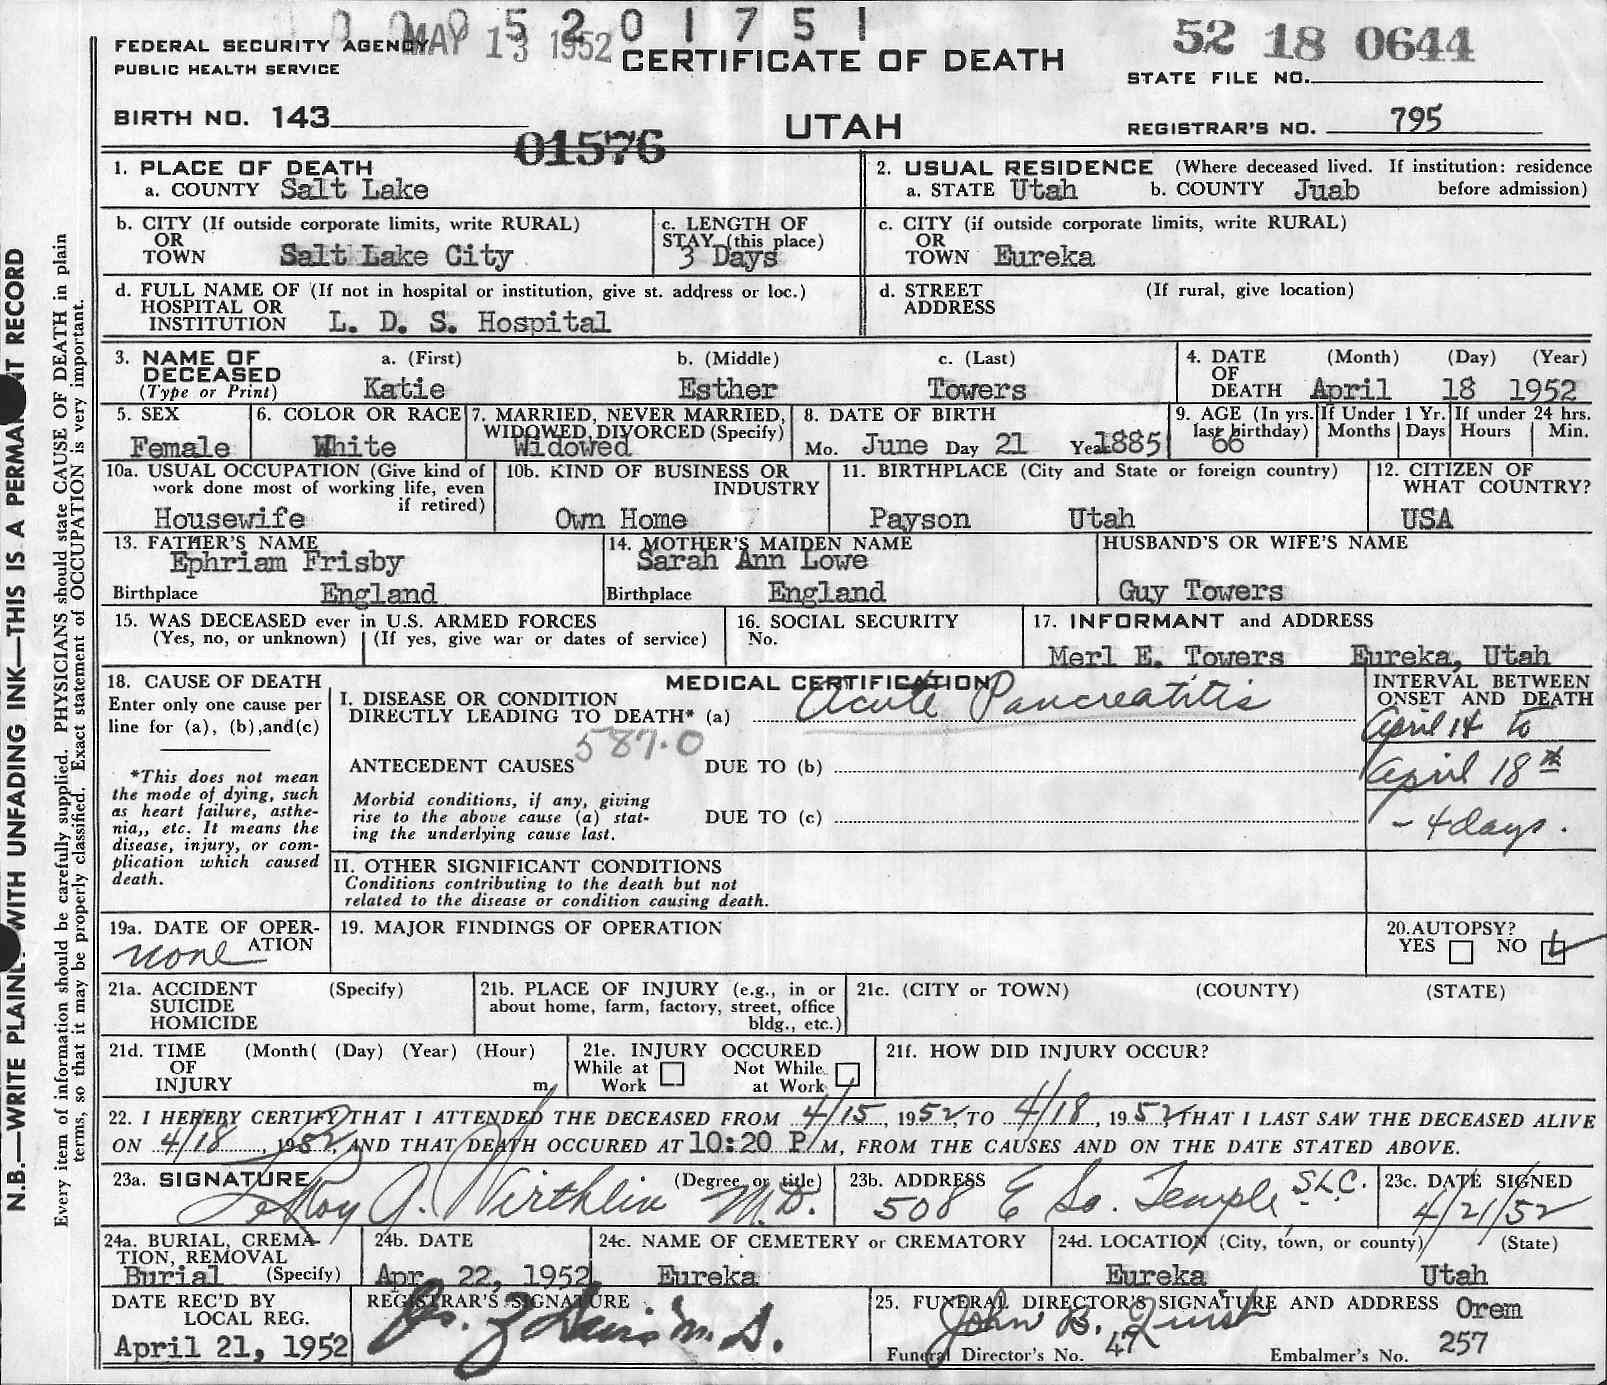 0 0 0 5 2 0 1 7 5 1
MAY 13 1952
52 18 0644
FEDERAL SECURITY AGENCY
PUBLIC HEALTH SERVICE
CERTIFICATE OF DEATH
STATE FILE NO.
BIRTH NO. 143
01576
UTAH
REGISTRAR'S NO. 795
1. PLACE OF DEATH
a. COUNTY Salt Lake
2. USUAL RESIDENCE (Where deceased lived. If institution: residence
a. STATE Utah b. COUNTY Juab before admission)
b. CITY (If outside corporate limits, write RURAL)
OR
TOWN Salt Lake City
c. LENGTH OF
STAY (this place)
3 Days
c. CITY (if outside corporate limits, write RURAL)
OR
TOWN Eureka
d. FULL NAME OF (If not in hospital or institution, give st. address or loc.)
HOSPITAL OR
INSTITUTION L. D. S. Hospital
d. STREET (If rural, give location)
ADDRESS
3. NAME OF a. (First) b. (Middle) c. (Last)
DECEASED
(Type or Print) Katie Esther Towers
4. DATE (Month) (Day) (Year)
OF
DEATH April 18 1952
5. SEX
Female
6. COLOR OR RACE
White
7. MARRIED, NEVER MARRIED,
WIDOWED, DIVORCED (Specify)
Widowed
8. DATE OF BIRTH
Mo. June Day 21 Year 1885
9. AGE (In yrs.
last birthday)
66
If Under 1 Yr.
Months Days
If under 24 hrs.
Hours Min.
10a. USUAL OCCUPATION (Give kind of
work done most of working life, even
if retired)
Housewife
10b. KIND OF BUSINESS OR
INDUSTRY
Own Home
11. BIRTHPLACE (City and State or foreign country)
Payson Utah
12. CITIZEN OF
WHAT COUNTRY?
USA
13. FATHER'S NAME
Ephriam Frisby
Birthplace England
14. MOTHER'S MAIDEN NAME
Sarah Ann Lowe
Birthplace England
HUSBAND'S OR WIFE'S NAME
Guy Towers
15. WAS DECEASED ever in U.S. ARMED FORCES
(Yes, no, or unknown) (If yes, give war or dates of service)
16. SOCIAL SECURITY
No.
17. INFORMANT and ADDRESS
Merl E. Towers Eureka, Utah
18. CAUSE OF DEATH
Enter only one cause per
line for (a), (b),and(c)
*This does not mean
the mode of dying, such
as heart failure, asthe-
nia,, etc. It means the
disease, injury, or com-
plication which caused
death.
MEDICAL CERTIFICATION
I. DISEASE OR CONDITION
DIRECTLY LEADING TO DEATH* (a) Acute Pancreatitis
587.0
ANTECEDENT CAUSES DUE TO (b)
Morbid conditions, if any, giving
rise to the above cause (a) stat-
ing the underlying cause last.
DUE TO (c)
II. OTHER SIGNIFICANT CONDITIONS
Conditions contributing to the death but not
related to the disease or condition causing death.
INTERVAL BETWEEN
ONSET AND DEATH
April 14 to
April 18th
- 4 days.
19a. DATE OF OPER-
ATION
none
19. MAJOR FINDINGS OF OPERATION
20.AUTOPSY?
YES NO
21a. ACCIDENT (Specify)
SUICIDE
HOMICIDE
21b. PLACE OF INJURY (e.g., in or
about home, farm, factory, street, office
bldg., etc.)
21c. (CITY or TOWN) (COUNTY) (STATE)
21d. TIME (Month( (Day) (Year) (Hour)
OF
INJURY m.
21e. INJURY OCCURED
While at Not While
Work at Work
21f. HOW DID INJURY OCCUR?
22. I HEREBY CERTIFY THAT I ATTENDED THE DECEASED FROM 4/15, 1952, TO 4/18, 1952, THAT I LAST SAW THE DECEASED ALIVE
ON 4/18, 1952, AND THAT DEATH OCCURED AT 10:20 P M, FROM THE CAUSES AND ON THE DATE STATED ABOVE.
23a. SIGNATURE (Degree or title)
LeRoy A. Wirthlin M.D.
23b. ADDRESS
508 E So. Temple S.L.C.
23c. DATE SIGNED
4/21/52
24a. BURIAL, CREMA-
TION, REMOVAL
Burial (Specify)
24b. DATE
Apr 22, 1952
24c. NAME OF CEMETERY or CREMATORY
Eureka
24d. LOCATION (City, town, or county) (State)
Eureka Utah
DATE REC'D BY
LOCAL REG.
April 21, 1952
REGISTRAR'S SIGNATURE
M. D.
25. FUNERAL DIRECTOR'S SIGNATURE AND ADDRESS Orem
John B.
Funeral Director's No. 47 Embalmer's No. 257
N.B.—WRITE PLAINLY WITH UNFADING INK—THIS IS A PERMANENT RECORD
Every item of information should be carefully supplied. PHYSICIANS should state CAUSE OF DEATH in plain
terms, so that it may be properly classified. Exact statement of OCCUPATION is very important.